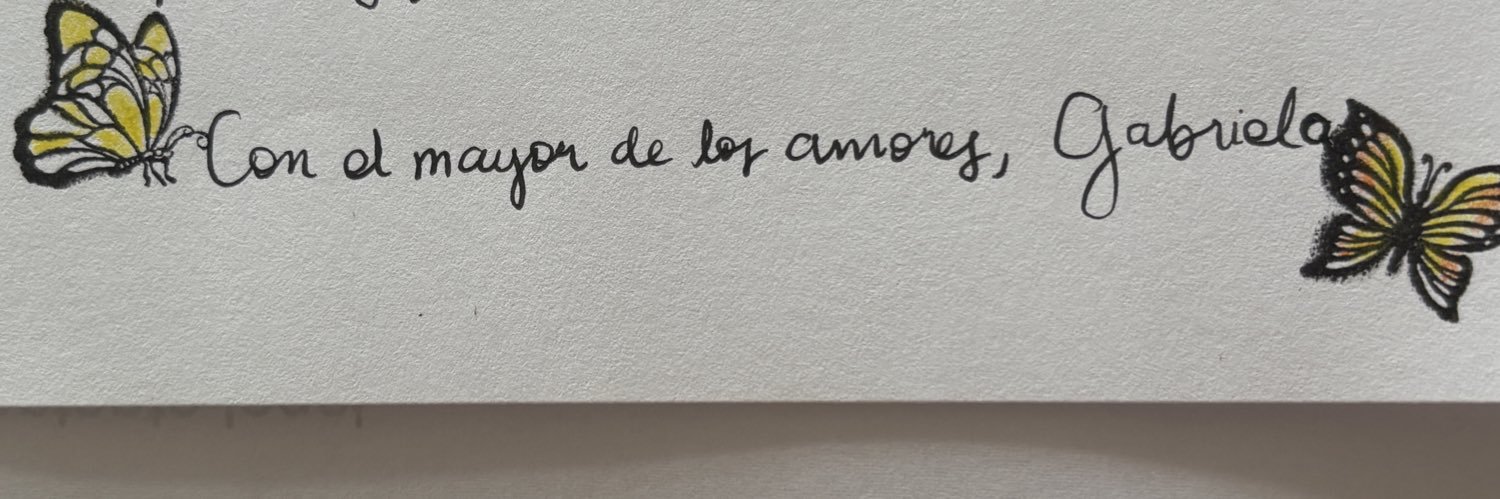 Con el mayor de los amores, Gabriela